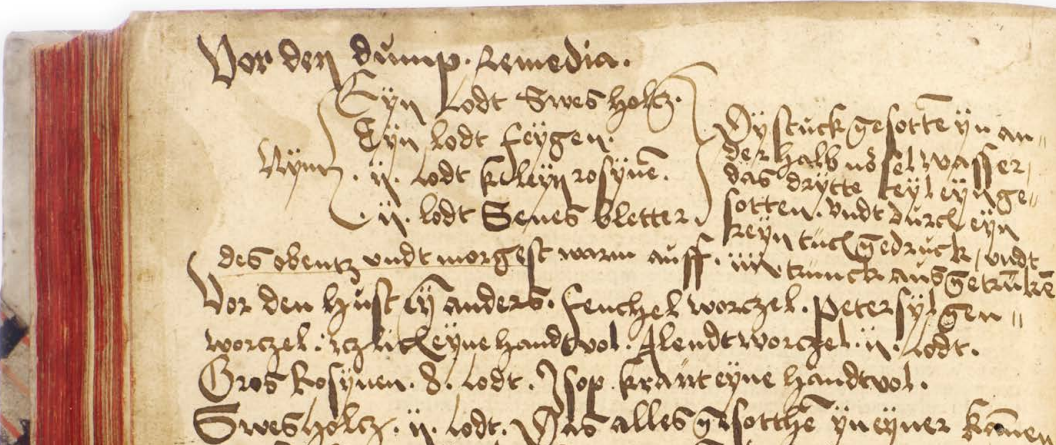 Vor den dump. Remedia.
Nym
Eyn lodt Swes holtz.
Eyn lodt feygen.
ij. lodt kleyn rosynē.
ij. lodt Senes bletter.
Dy stuck gesottē yn an„
derhalb nösel wasser,
das drytte teyl eyn ge„
sotten. vndt durch eyn
reyn tuch gedruck, vndt
des obentz vndt morgest warm auff. iiij trunck aus getrūkē
Vor den Hust eȳ anders. Fenchel worczel. Petersylgen„
worczel. iczlich eyne handtvol. Alendt worczel. ij. lodt.
Gros Rosynen. 8. lodt. Isop kraut eyne handtvol.
Swesholtz. ij. lodt. Das alles gesotthē yn eyner